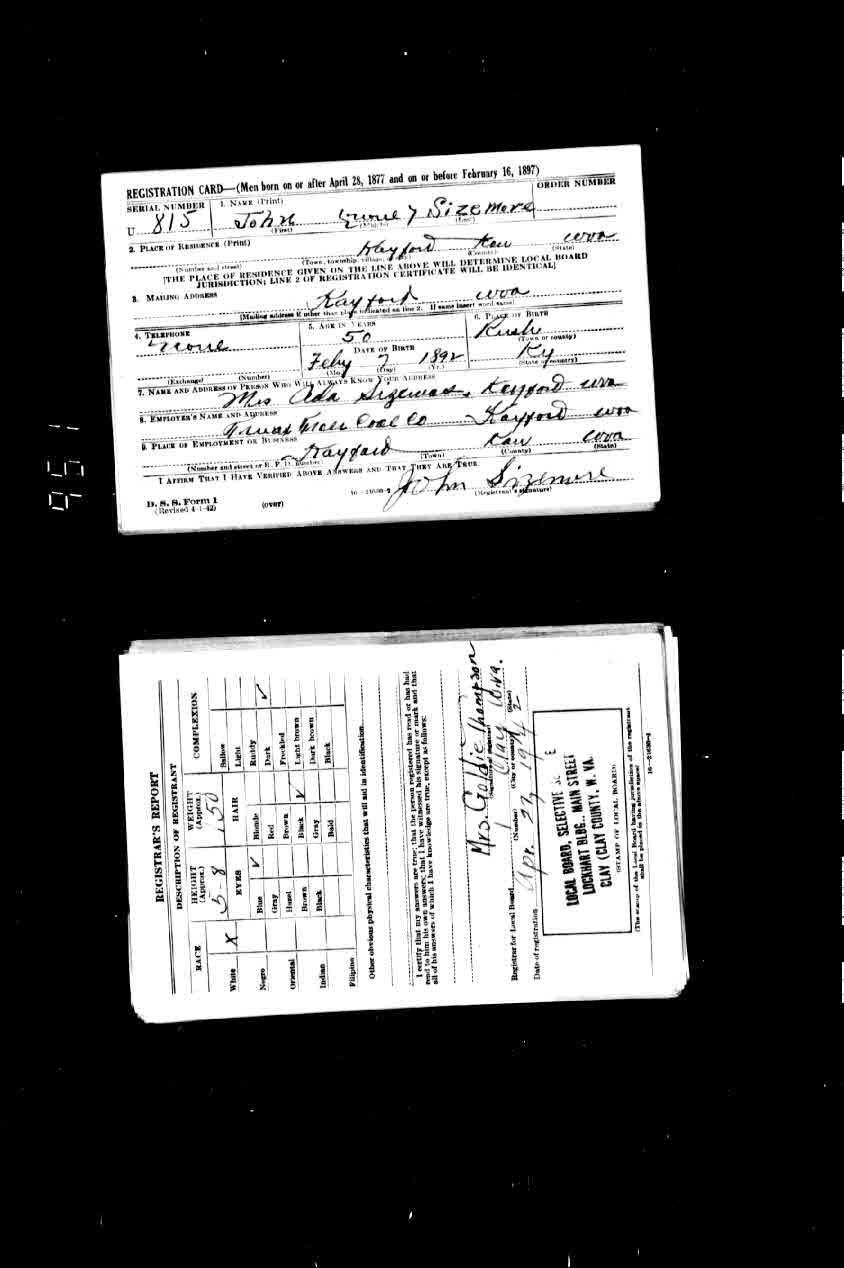 REGISTRATION CARD—(Men born on or after April 28, 1877 and on or before February 16, 1897)
SERIAL NUMBER 1. NAME (Print) ORDER NUMBER
U 815 John Sizemore
(First) (Middle) (Last)
2. PLACE OF RESIDENCE (Print)
Kayford Kan wva
(Number and street) (Town, township, village, or city) (County) (State)
[THE PLACE OF RESIDENCE GIVEN ON THE LINE ABOVE WILL DETERMINE LOCAL BOARD
JURISDICTION; LINE 2 OF REGISTRATION CERTIFICATE WILL BE IDENTICAL]
3. MAILING ADDRESS
Kayford wva
(Mailing address if other than place indicated on line 2. If same insert word same)
4. TELEPHONE 5. AGE IN YEARS 6. PLACE OF BIRTH
none 50 Rush
(Town or county)
DATE OF BIRTH
Feby 7 1892 Ky
(Exchange) (Number) (Mo.) (Day) (Yr.) (State or country)
7. NAME AND ADDRESS OF PERSON WHO WILL ALWAYS KNOW YOUR ADDRESS
Mrs Ada Sizemore, Kayford wva
8. EMPLOYER'S NAME AND ADDRESS
Coal Co Kayford wva
9. PLACE OF EMPLOYMENT OR BUSINESS
Kayford Kan wva
(Number and street or R. F. D. number) (Town) (County) (State)
I AFFIRM THAT I HAVE VERIFIED ABOVE ANSWERS AND THAT THEY ARE TRUE.
John Sizemore
D. S. S. Form 1
(Revised 4-1-42) (over) 16—21630-2 (Registrant's signature)
951
REGISTRAR'S REPORT
DESCRIPTION OF REGISTRANT
RACE HEIGHT (Approx.) WEIGHT (Approx.) COMPLEXION
5-8 150
White X EYES HAIR Sallow
Light
Negro Blue ✓ Blonde Ruddy ✓
Gray Red Dark
Oriental Hazel Brown Freckled
Brown Black ✓ Light brown
Indian Black Gray Dark brown
Bald Black
Filipino
Other obvious physical characteristics that will aid in identification
I certify that my answers are true; that the person registered has read or has had
read to him his own answers; that I have witnessed his signature or mark and that
all of his answers of which I have knowledge are true, except as follows:
Mrs. Goldie Thompson
(Signature of registrar)
Registrar for Local Board 1 Clay W.va.
(Number) (City or county) (State)
Date of registration Apr. 27, 1942
LOCAL BOARD, SELECTIVE SE E
LOCKHART BLDG., MAIN STREET
CLAY (CLAY COUNTY, W. VA.
(STAMP OF LOCAL BOARD)
(The stamp of the Local Board having jurisdiction of the registrant
shall be placed in the above space)
16—21630-1